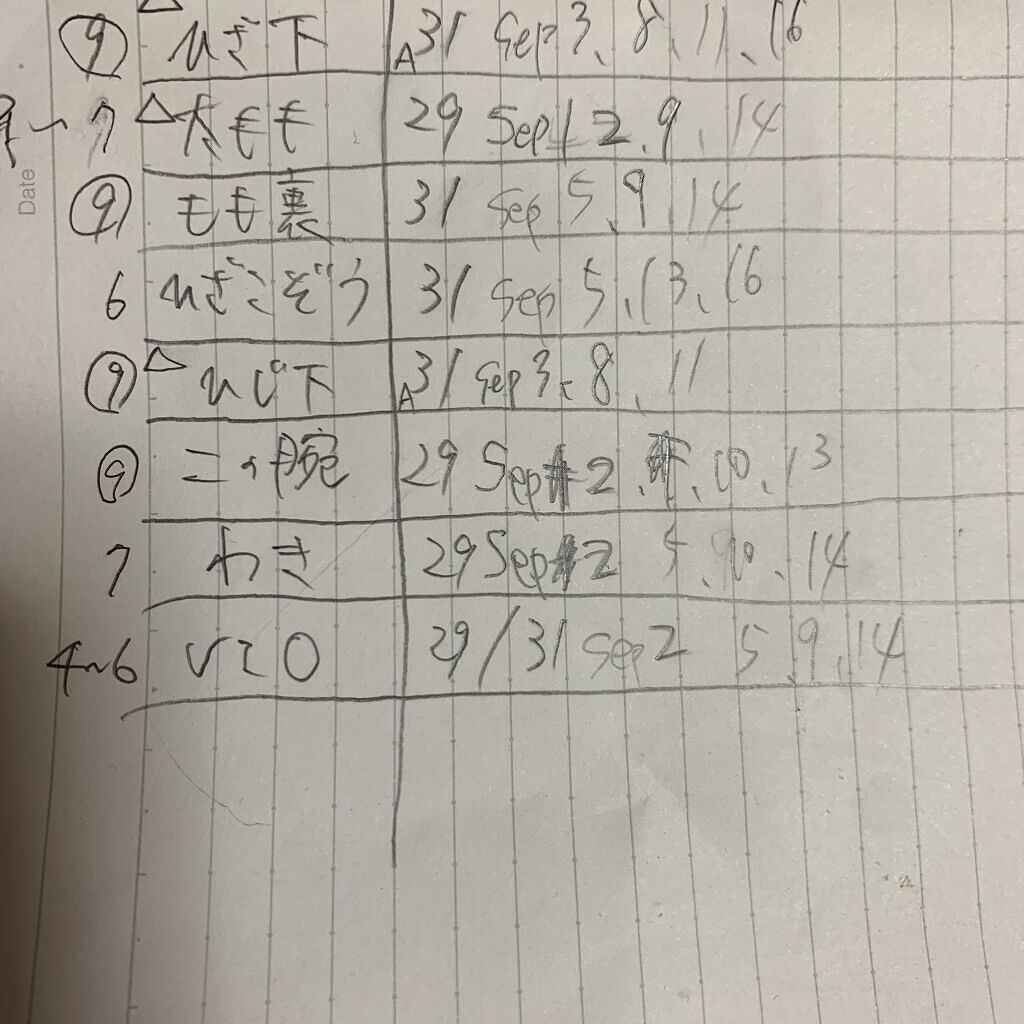 ⑨ ひざ下 A31 Sep 3、8、11、16
7 △太もも 29 Sep 1 2、9、14
⑨ もも裏 31 Sep 5、9、14
6 ひざこぞう 31 Sep 5、13、16
⑨ △ひじ下 A31 Sep 3、8、11
⑨ 二の腕 29 Sep 2、10、13
7 わき 29 Sep 2 5、10、14
4~6 VIO 29/31 Sep 2 5、9、14
Date